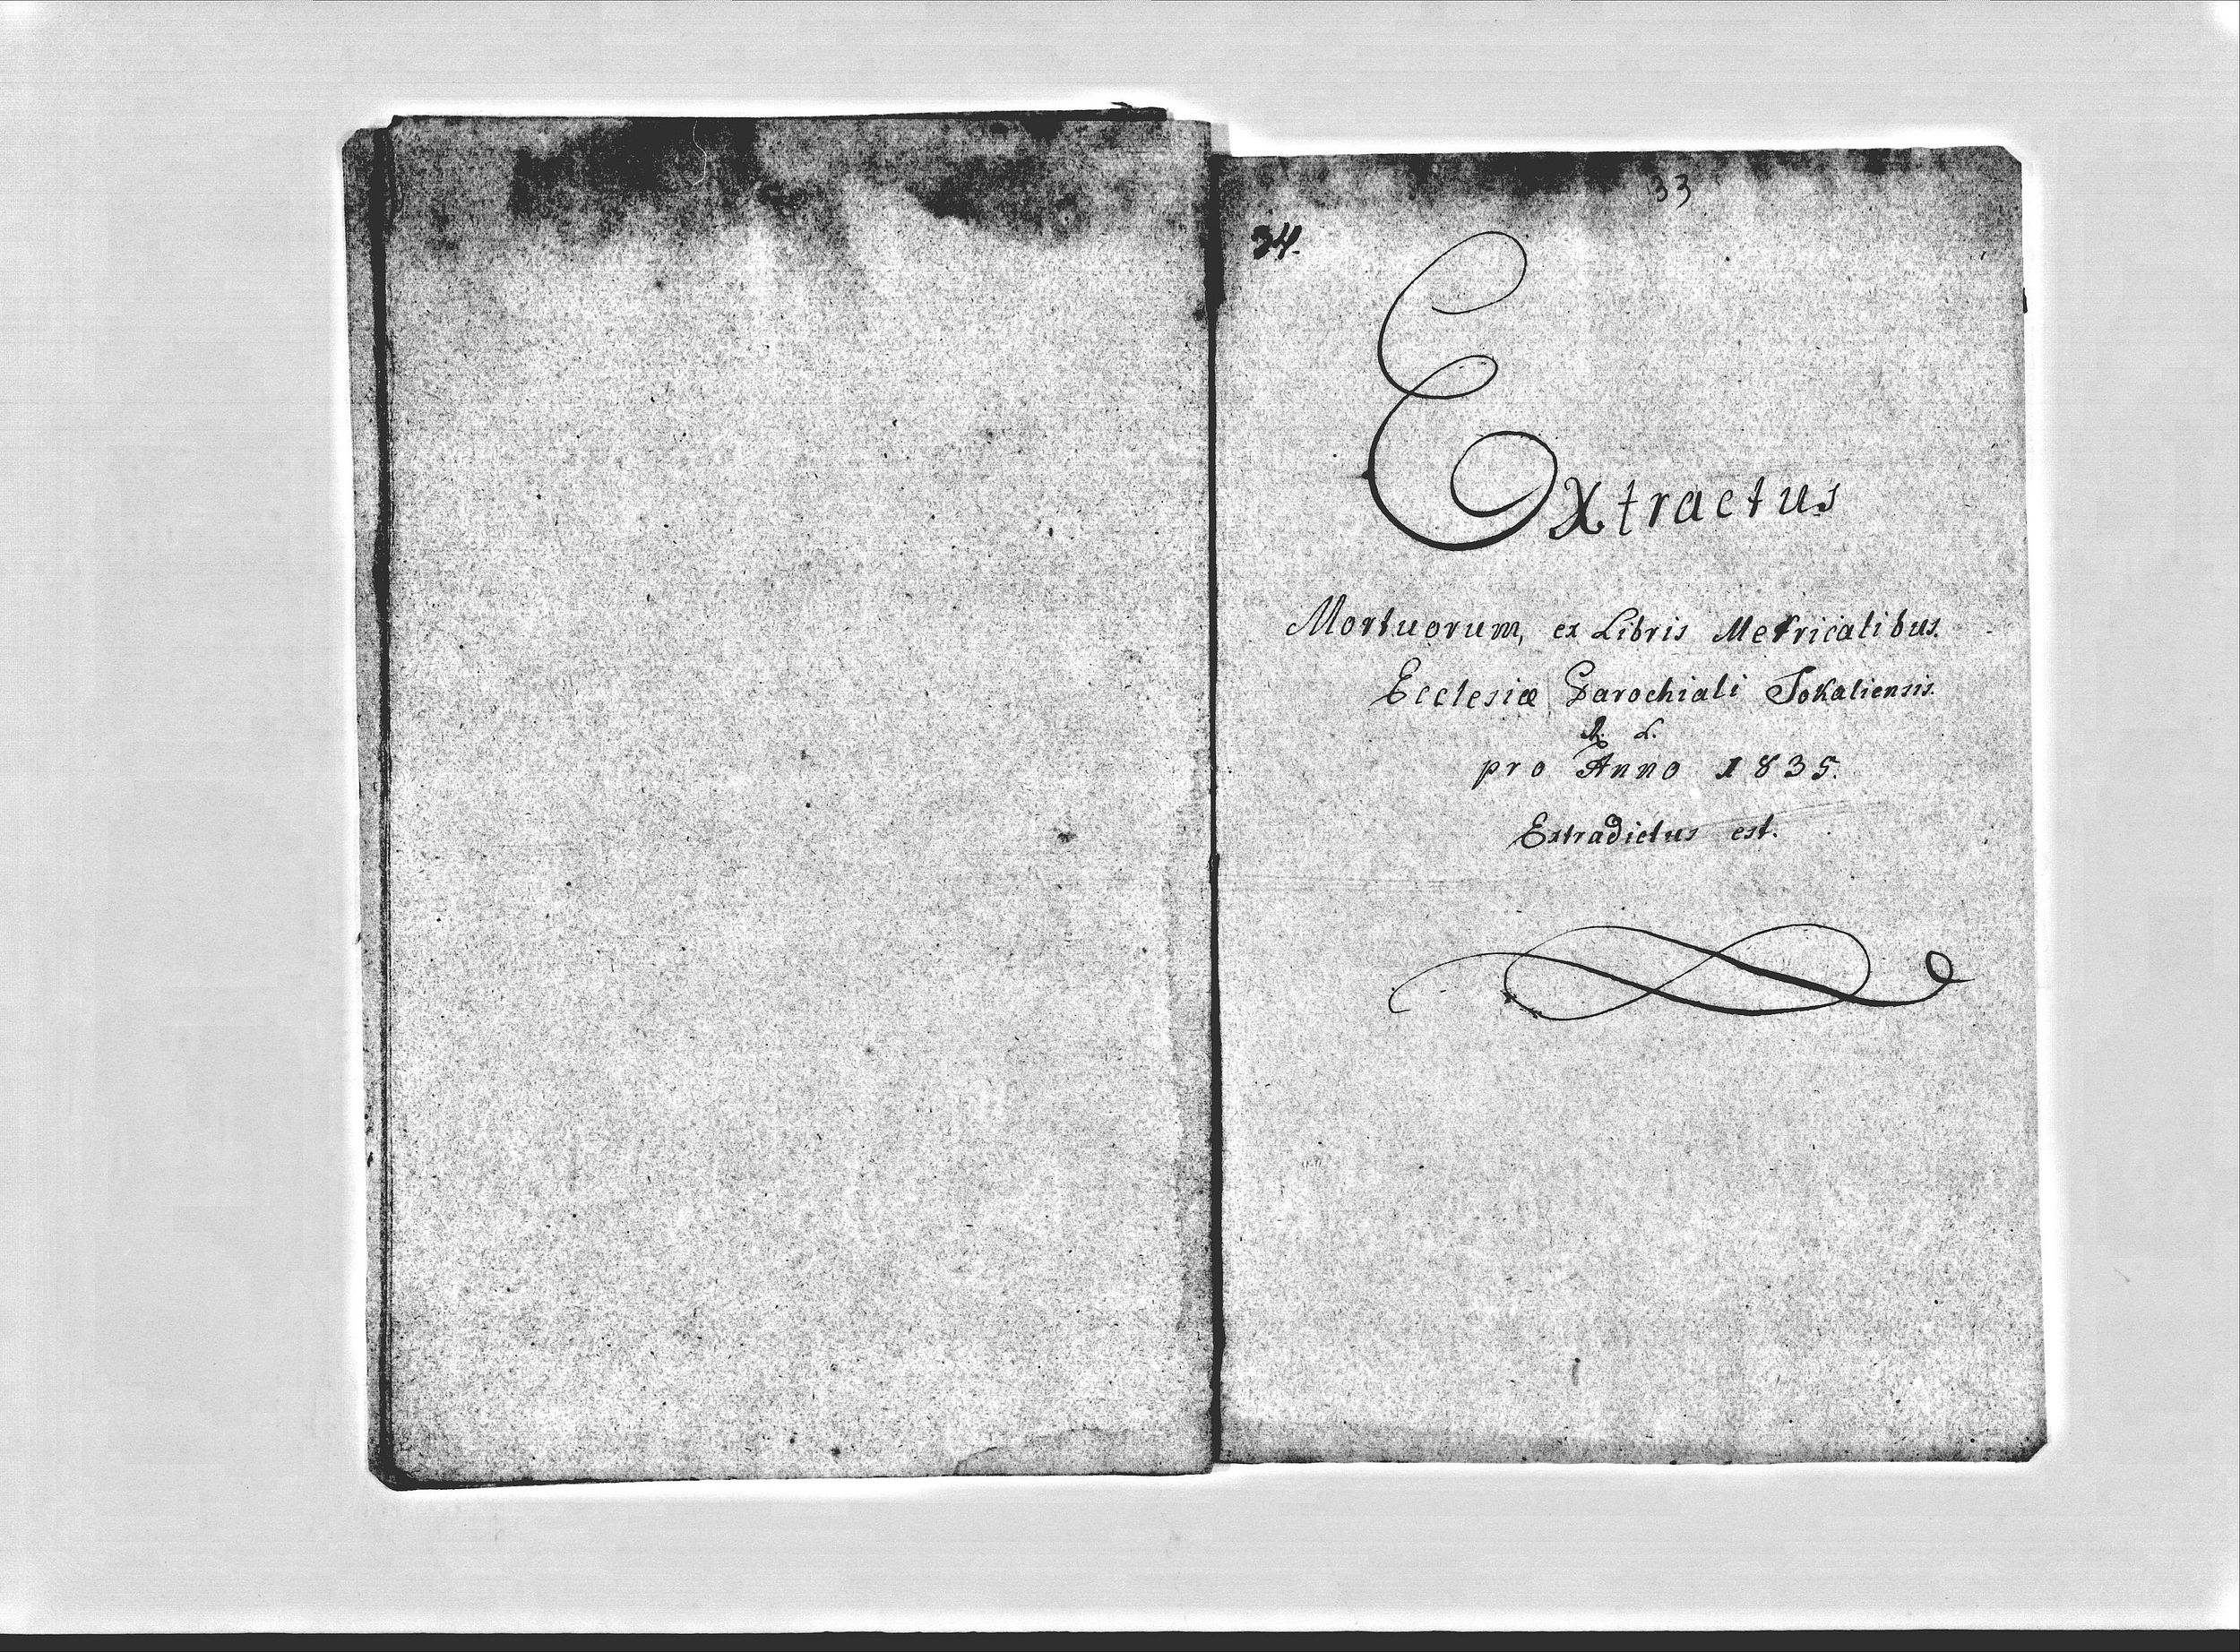 33
34.
Extractus
Mortuorum, ex Libris Metricalibus.
Ecclesiæ Parochiali Sokaliensis.
R. L.
pro Anno 1835.
Extradictus est.